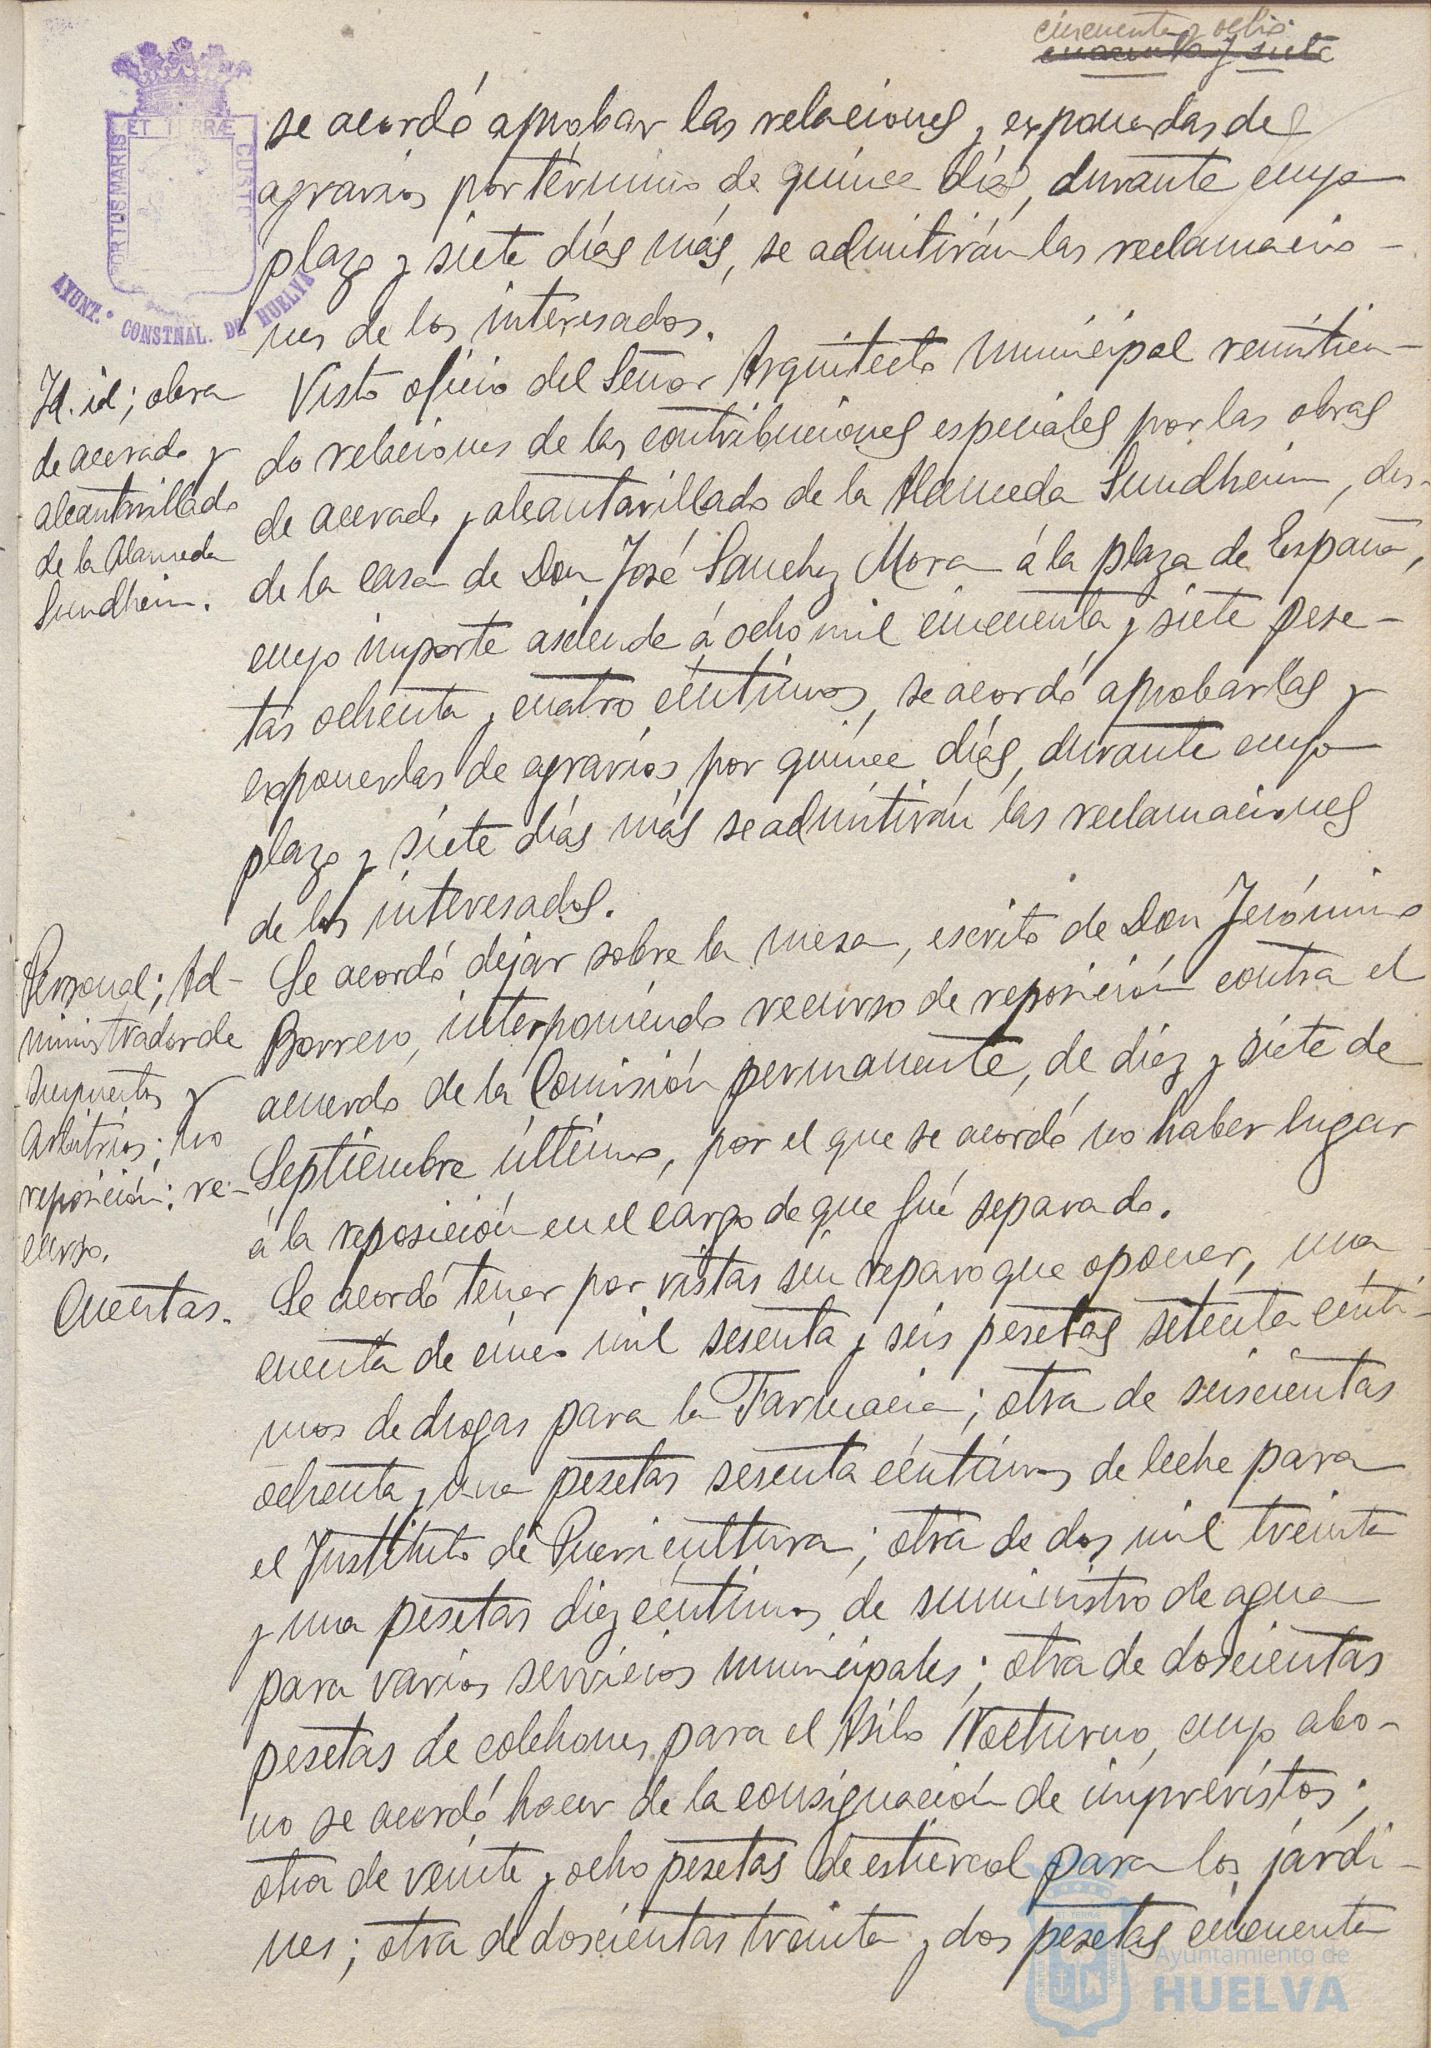 cincuenta y ocho
cincuenta y siete
PORTUS MARIS ET TERRÆ CUSTO
AYUNT.º CONSTNAL. DE HUELVA
se acordó aprobar las relaciones y exponerlas de
agravios por término de quince días, durante cuyo
plazo y siete días más, se admitirán las reclamacio-
nes de los interesados.
Id. id; obra
de acerado y
alcantarillado
de la Alameda
Sundheim.
Visto oficio del Señor Arquitecto Municipal remitien-
do relaciones de las contribuciones especiales por las obras
de acerado y alcantarillado de la Alameda Sundheim, des-
de la casa de Don José Sanchez Mora á la plaza de España,
cuyo importe asciende á ocho mil cincuenta y siete pese-
tas ochenta y cuatro céntimos, se acordó aprobarlas y
exponerlas de agravios por quince días, durante cuyo
plazo y siete días más se admitirán las reclamaciones
de los interesados.
Personal; Ad-
ministrador de
Impuestos y
Arbitrios; no
reposición; re-
curso.
Se acordó dejar sobre la mesa, escrito de Don Jerónimo
Borrero, interponiendo recurso de reposición contra el
acuerdo de la Comisión permanente, de diez y siete de
Septiembre último, por el que se acordó no haber lugar
á la reposición en el cargo de que fué separado.
Cuentas.
Se acordó tener por vistas sin reparo que oponer, una
cuenta de cinco mil sesenta y seis pesetas setenta cénti-
mos de drogas para la Farmacia; otra de seiscientas
ochenta y una pesetas sesenta céntimos de leche para
el Instituto de Puericultura; otra de dos mil treinta
y una pesetas diez céntimos de suministro de agua
para varios servicios municipales; otra de doscientas
pesetas de colchones para el Asilo Nocturno, cuyo abo-
no se acordó hacer de la consignación de imprevistos;
otra de veinte y ocho pesetas de estiercol para los jardi-
nes; otra de doscientas treinta y dos pesetas cincuenta
Ayuntamiento de
HUELVA